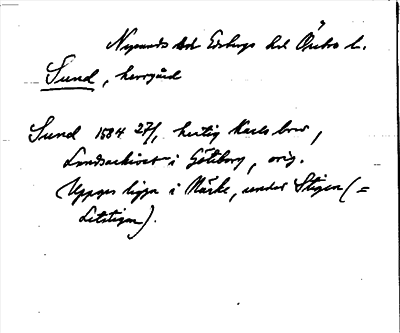 Nysunds sdr Edsbergs hd Örebro l.
Sund, herrgård
Sund 1584 27/1, hertig Karls brev,
Landsarkivet i Göteborg, orig.
Uppges ligga i Närke, under Stigen (=
Letstigen).